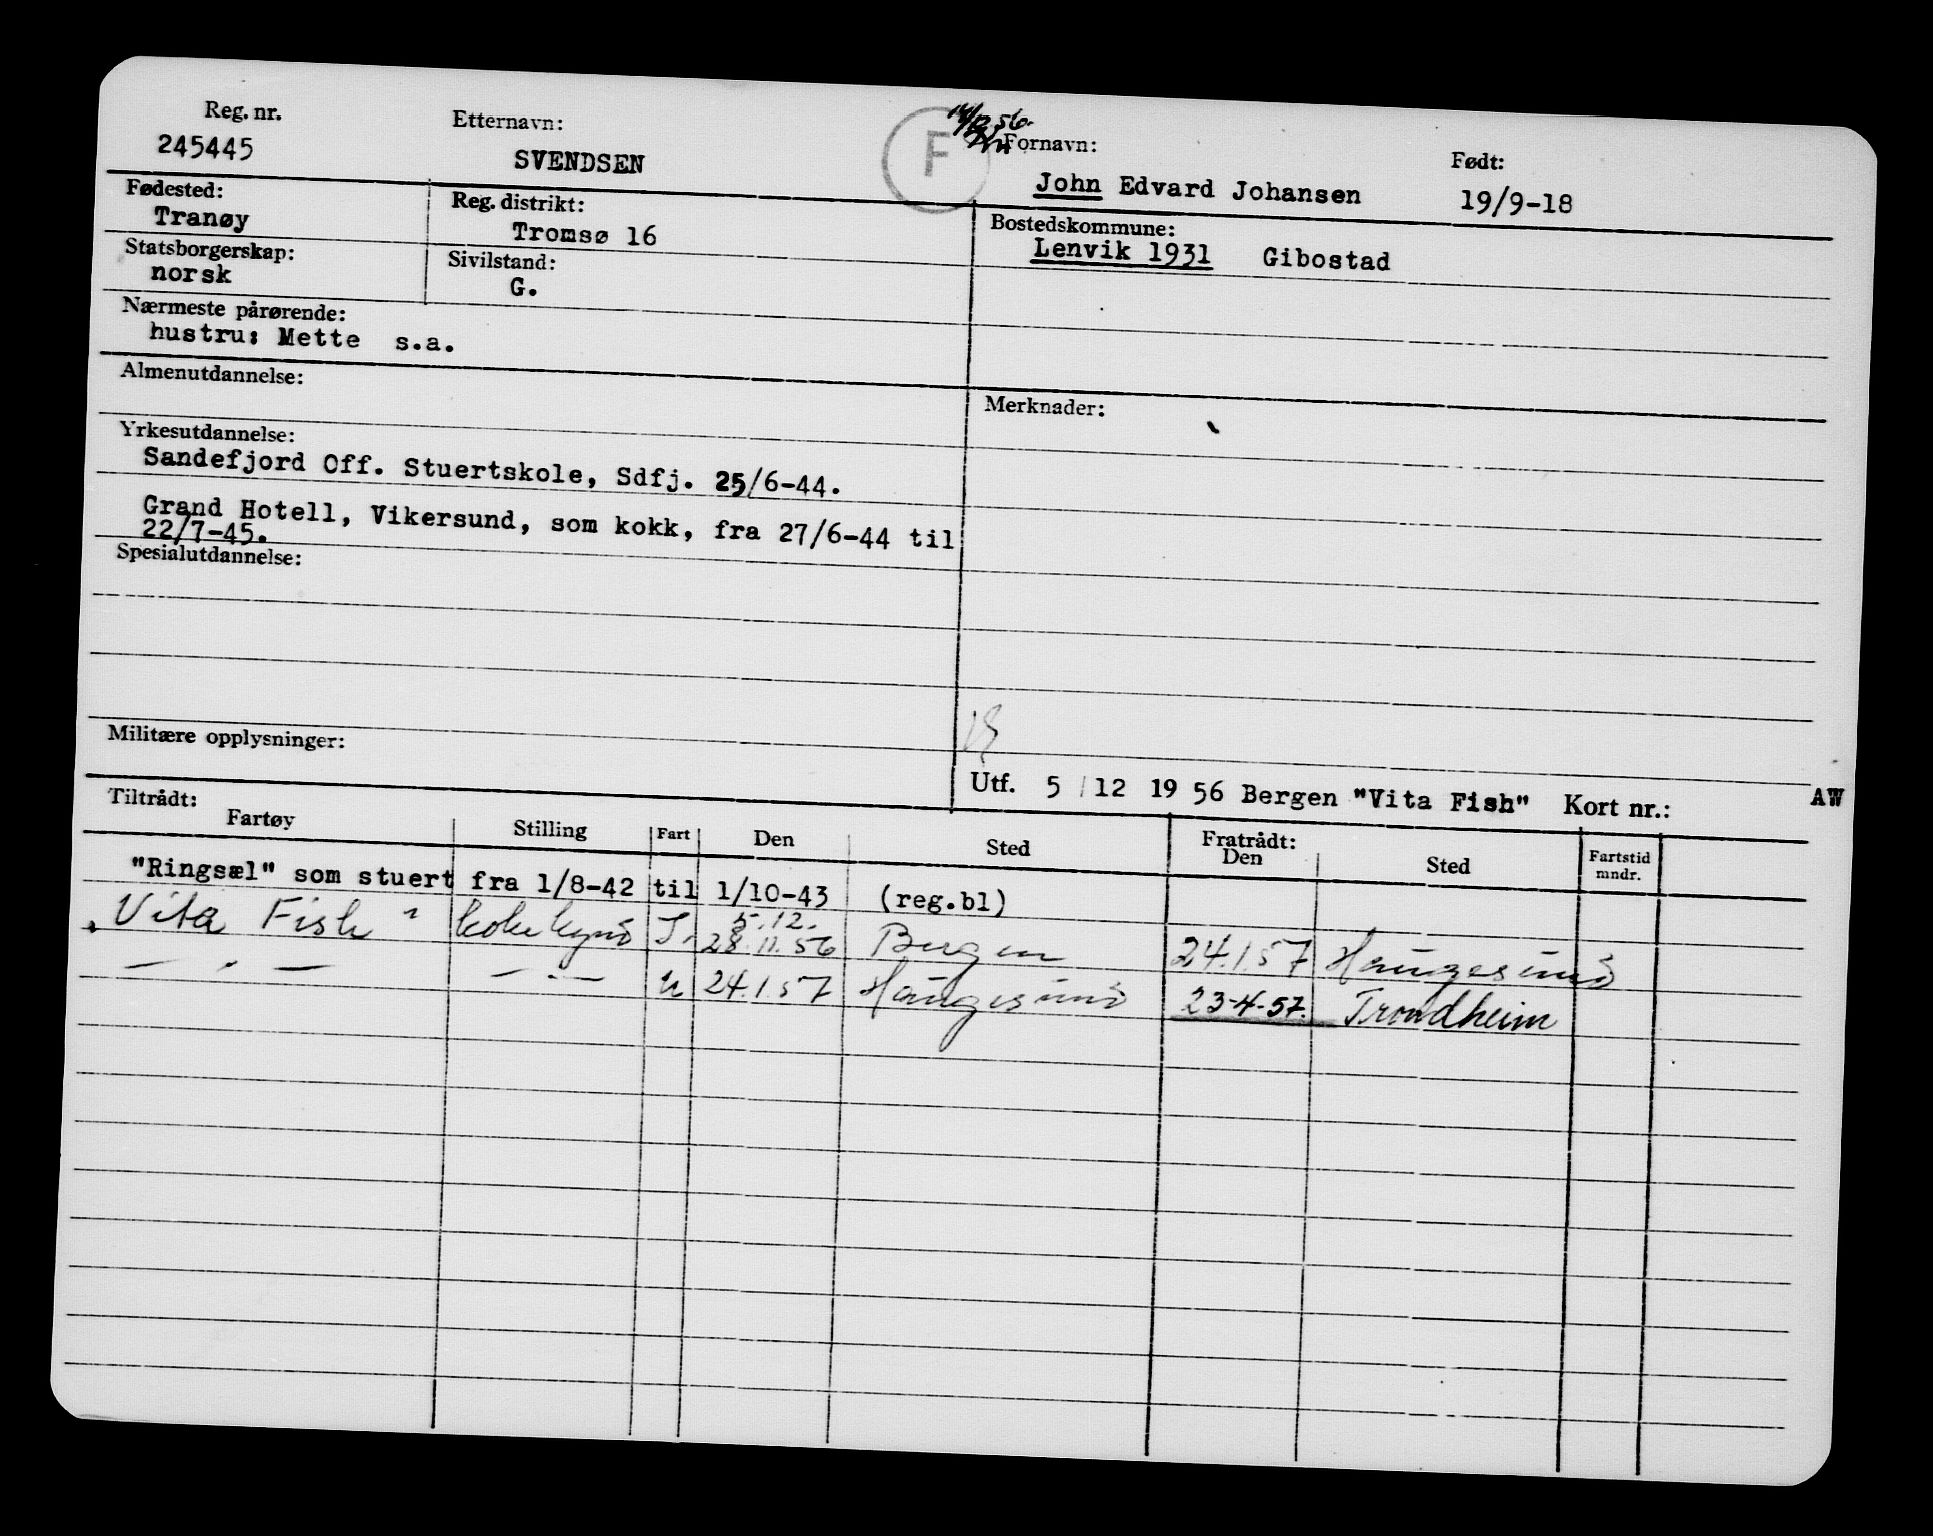 Reg. nr.
Etternavn:
F
14/12 56.
Fornavn:
Født:
245445
SVENDSEN
John Edvard Johansen
19/9-18
Fødested:
Tranøy
Reg. distrikt:
Tromsø 16
Bostedskommune:
Lenvik 1931 Gibostad
Statsborgerskap:
norsk
Sivilstand:
G.
Nærmeste pårørende:
hustru: Mette s.a.
Almenutdannelse:
Merknader:
Yrkesutdannelse:
Sandefjord Off. Stuertskole, Sdfj. 25/6-44.
Grand Hotell, Vikersund, som kokk, fra 27/6-44 til
22/7-45.
Spesialutdannelse:
Militære opplysninger:
Utf. 5/12 19 56 Bergen "Vita Fish" Kort nr.: AW
Tiltrådt:
Fartøy Stilling Fart Den Sted Fratrådt: Den Sted Fartstid mndr.
"Ringsæl" som stuert fra 1/8-42 til 1/10-43 (reg.bl)
5.12.
"Vita Fish" kokk kyst I. 28.11.56 Bergen 24.1.57 Haugesund
— " — — " — U 24.1.57 Haugesund 23-4-57. Trondheim